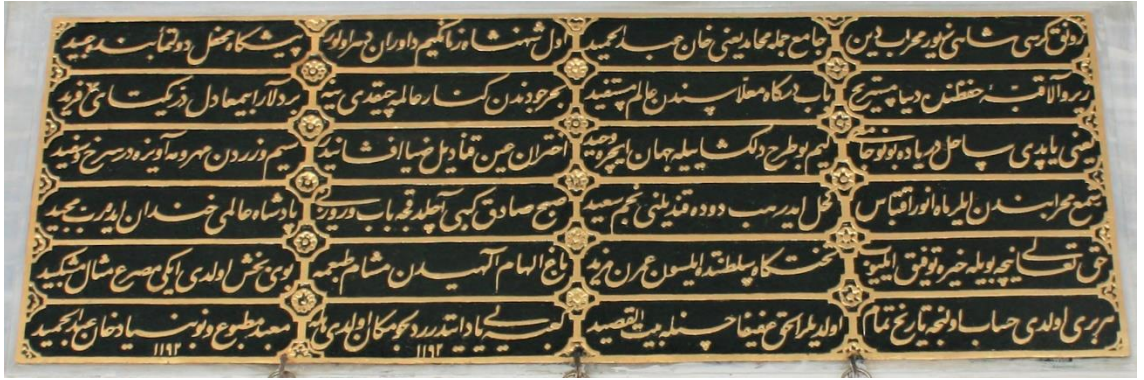 رونق كرسئ شاهی زیور محراب دین
جامع جمله محامد یعنی خان عبد الحمید
اول شهنشاه زمانكیم داوران دهر اولور
پیشكاه محفل دولتمآبنده عبید
زیر والا قبۀ حفظنده دنیا مستریح
باب درگاه معلاسندن عالم مستفید
بحر جودندن كنار عالمه چیقدی ینه
بر دلارا بیمعادل در یكتای فرید
یعنی یاپدی ساحل دریاده بو نو جامعی
كیم بو طرح دلكشا ایله جهان ایچره وحید
اختران عین قنادیل ضیا افشانیدر
سیم و زردن مهر و مه آویزه در سرخ و سفید
شمع محرابندن ایلر ماه انور اقتباس
كحل ایدر هب دوده قندیلنی نجم سعید
صبح صادق كبی آچلدقجه باب
پادشاه عالمی خندان ایده رب مجید
حق تعالی نیجه بویله خیره توفیق ایلیوب
تختكاه سلطنتده ایلسون عمرن مزید
باغ الهام الهیدن مشام طبعمه
بوی بخش اولدی ایكی مصرع مثال مشكبید
سربری اولدی حساب اولنجه تاریخ تمام
اولدیلر الحق عفیفا حسنله بیت القصید
كعبه یی یاد ایتدرر دلجو مكان اولدی
١١٩٢
معبد مطبوع و نو بنیاد خان عبد الحمید
١١٩٢